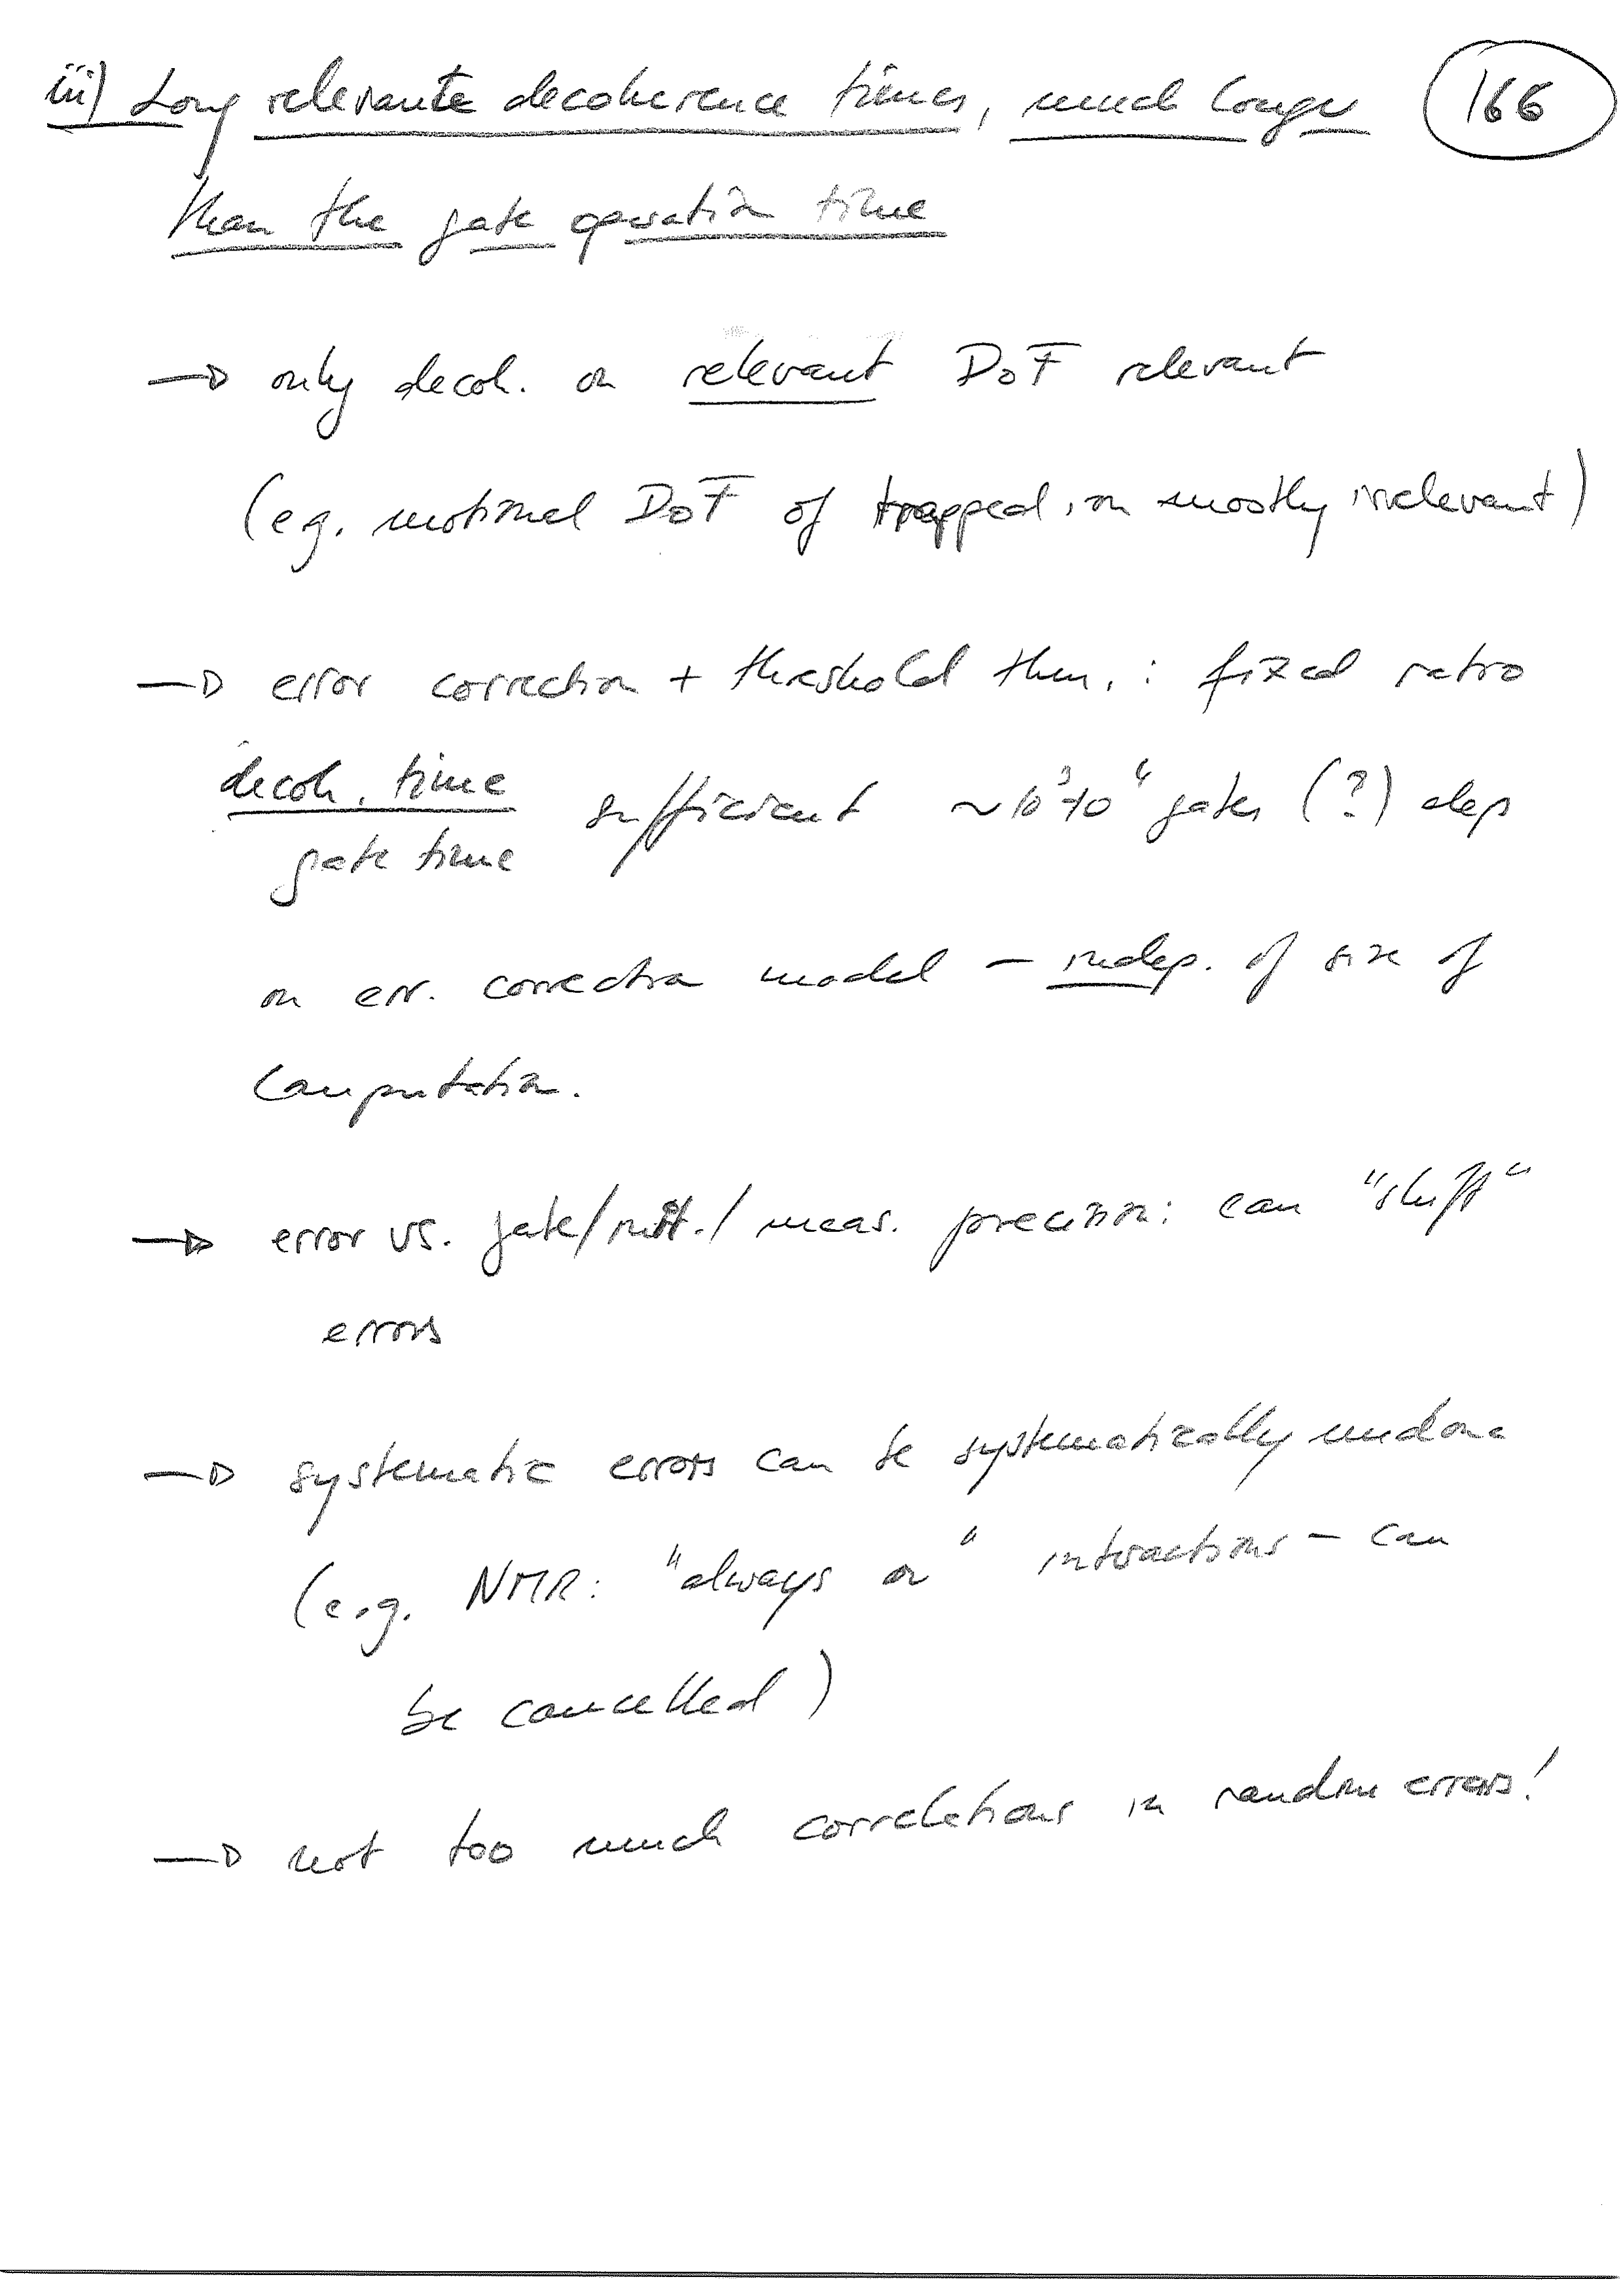 iii) Long relevante decoherence times, much longer
166
than the gate operation time
→ only decoh. on relevant DoF relevant
(e.g. motional DoF of trapped ion mostly irrelevant)
→ error correction + threshold thm. : fixed ratio
decoh. time
gate time
sufficient ~10³-10⁴ gates (?) dep
on err. correction model – indep. of size of
computation.
→ error vs. gate/init./meas. precision: can "shift"
errors
→ systematic errors can be systematically undone
(e.g. NMR: "always on" interactions – can
be cancelled)
→ not too much correlations in random errors!